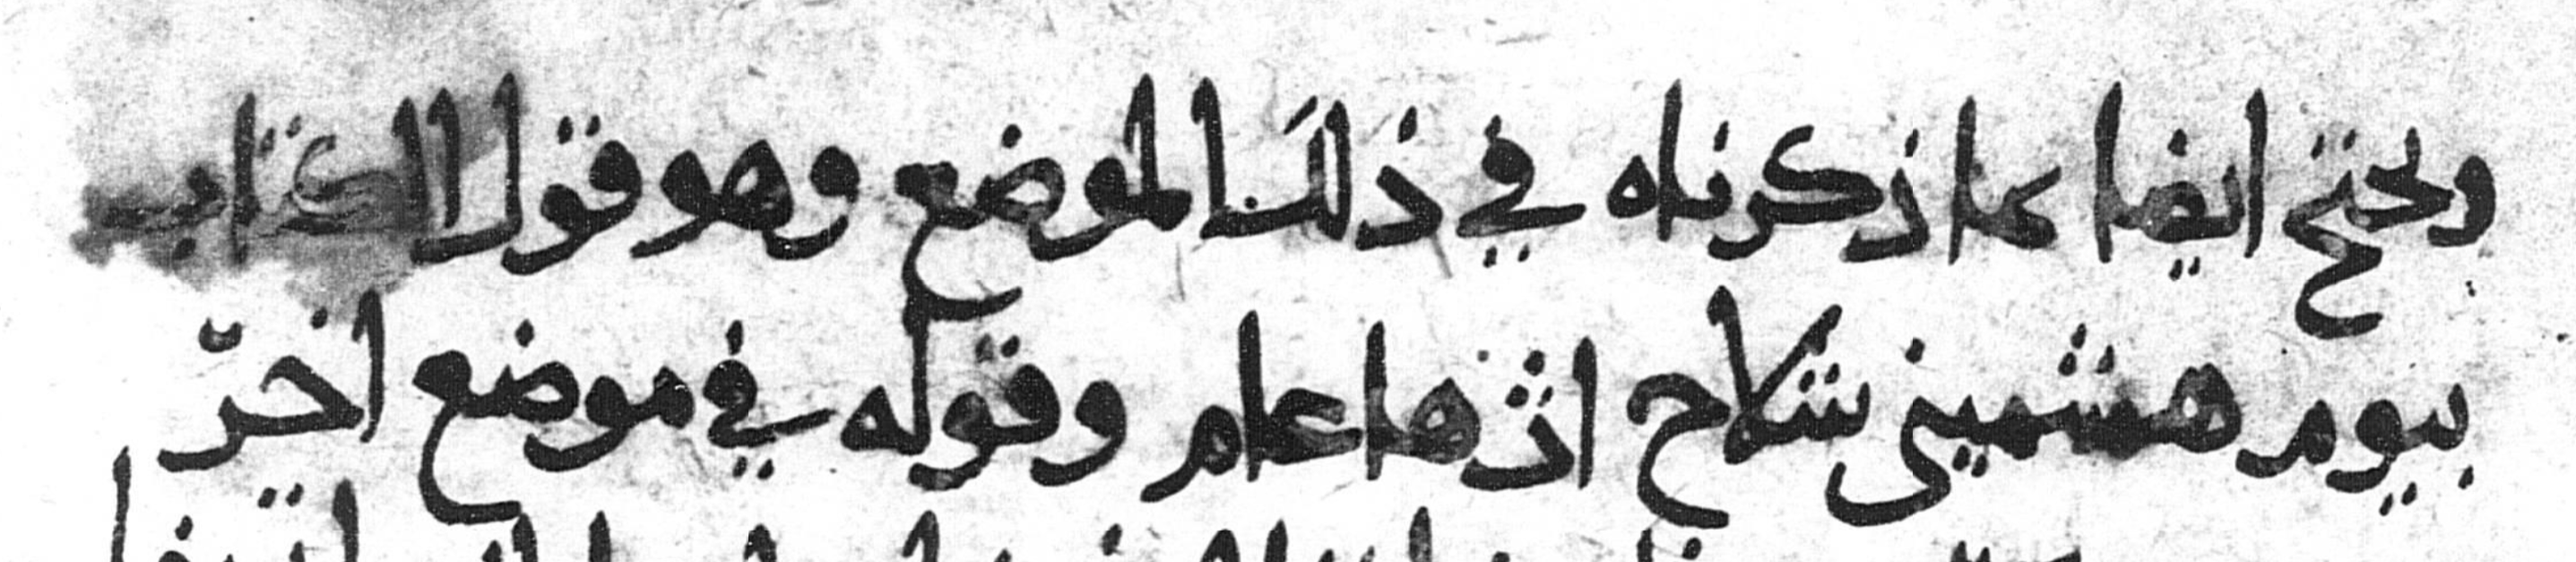 ونحتج ايضا بما ذكرناه في ذلك الموضع وهو قول الكتاب
بيوم هشميني شلاح اث هاعام وقوله في موضع اخر